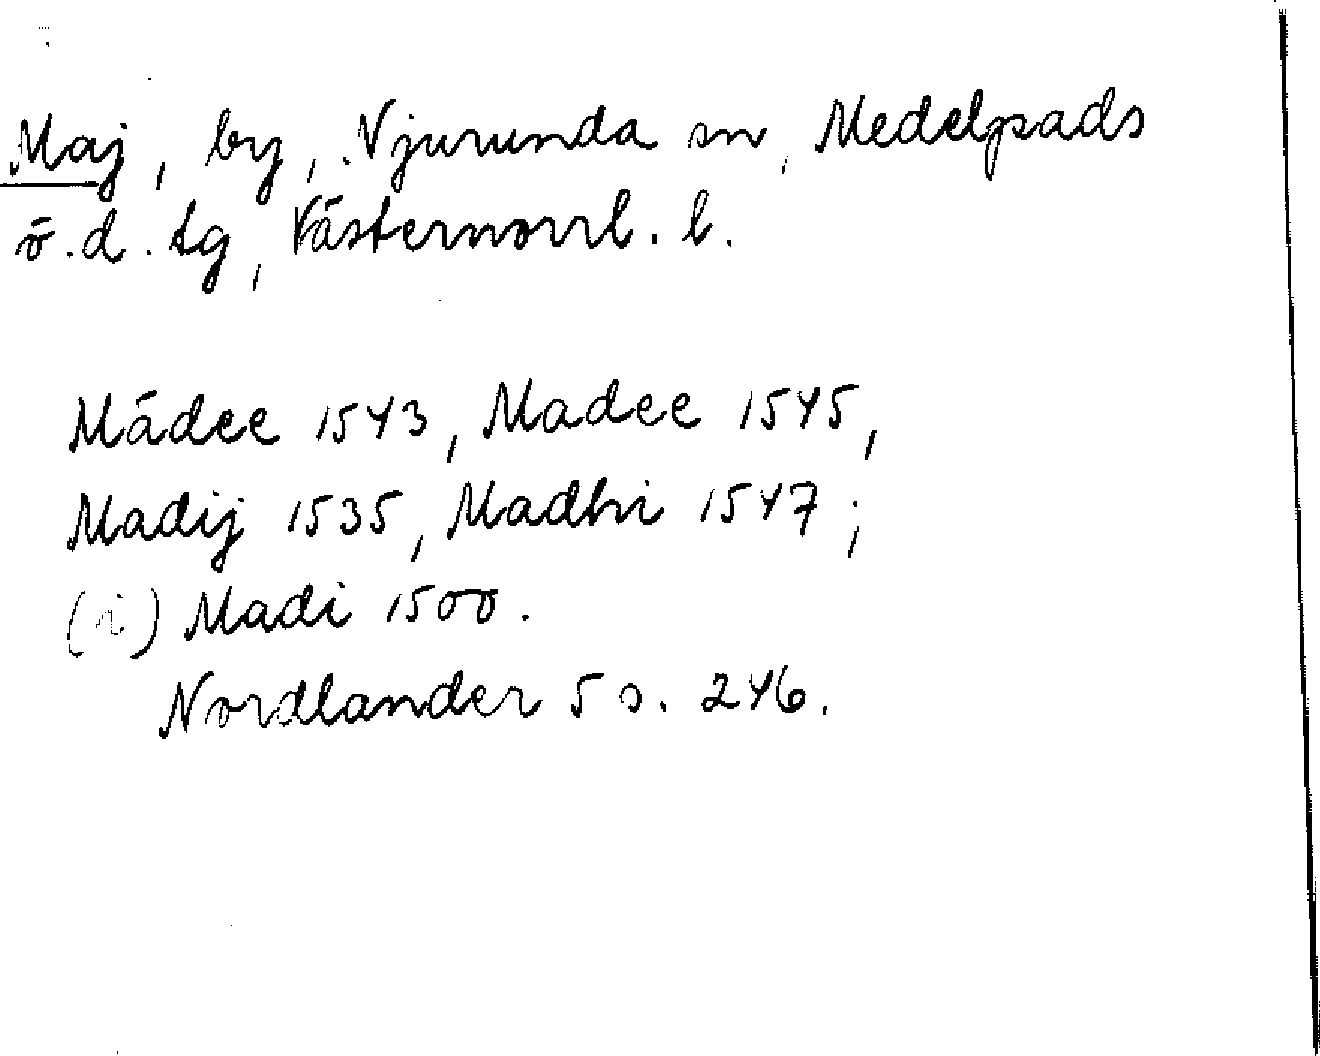 Maj, by, Njurunda sn, Medelpads
ö.d. tg, Västernorrl. l.
Mädee 1543, Madee 1545,
Madij 1535, Madhi 1547;
(i) Madi 1500.
Nordlander 5 s. 246.